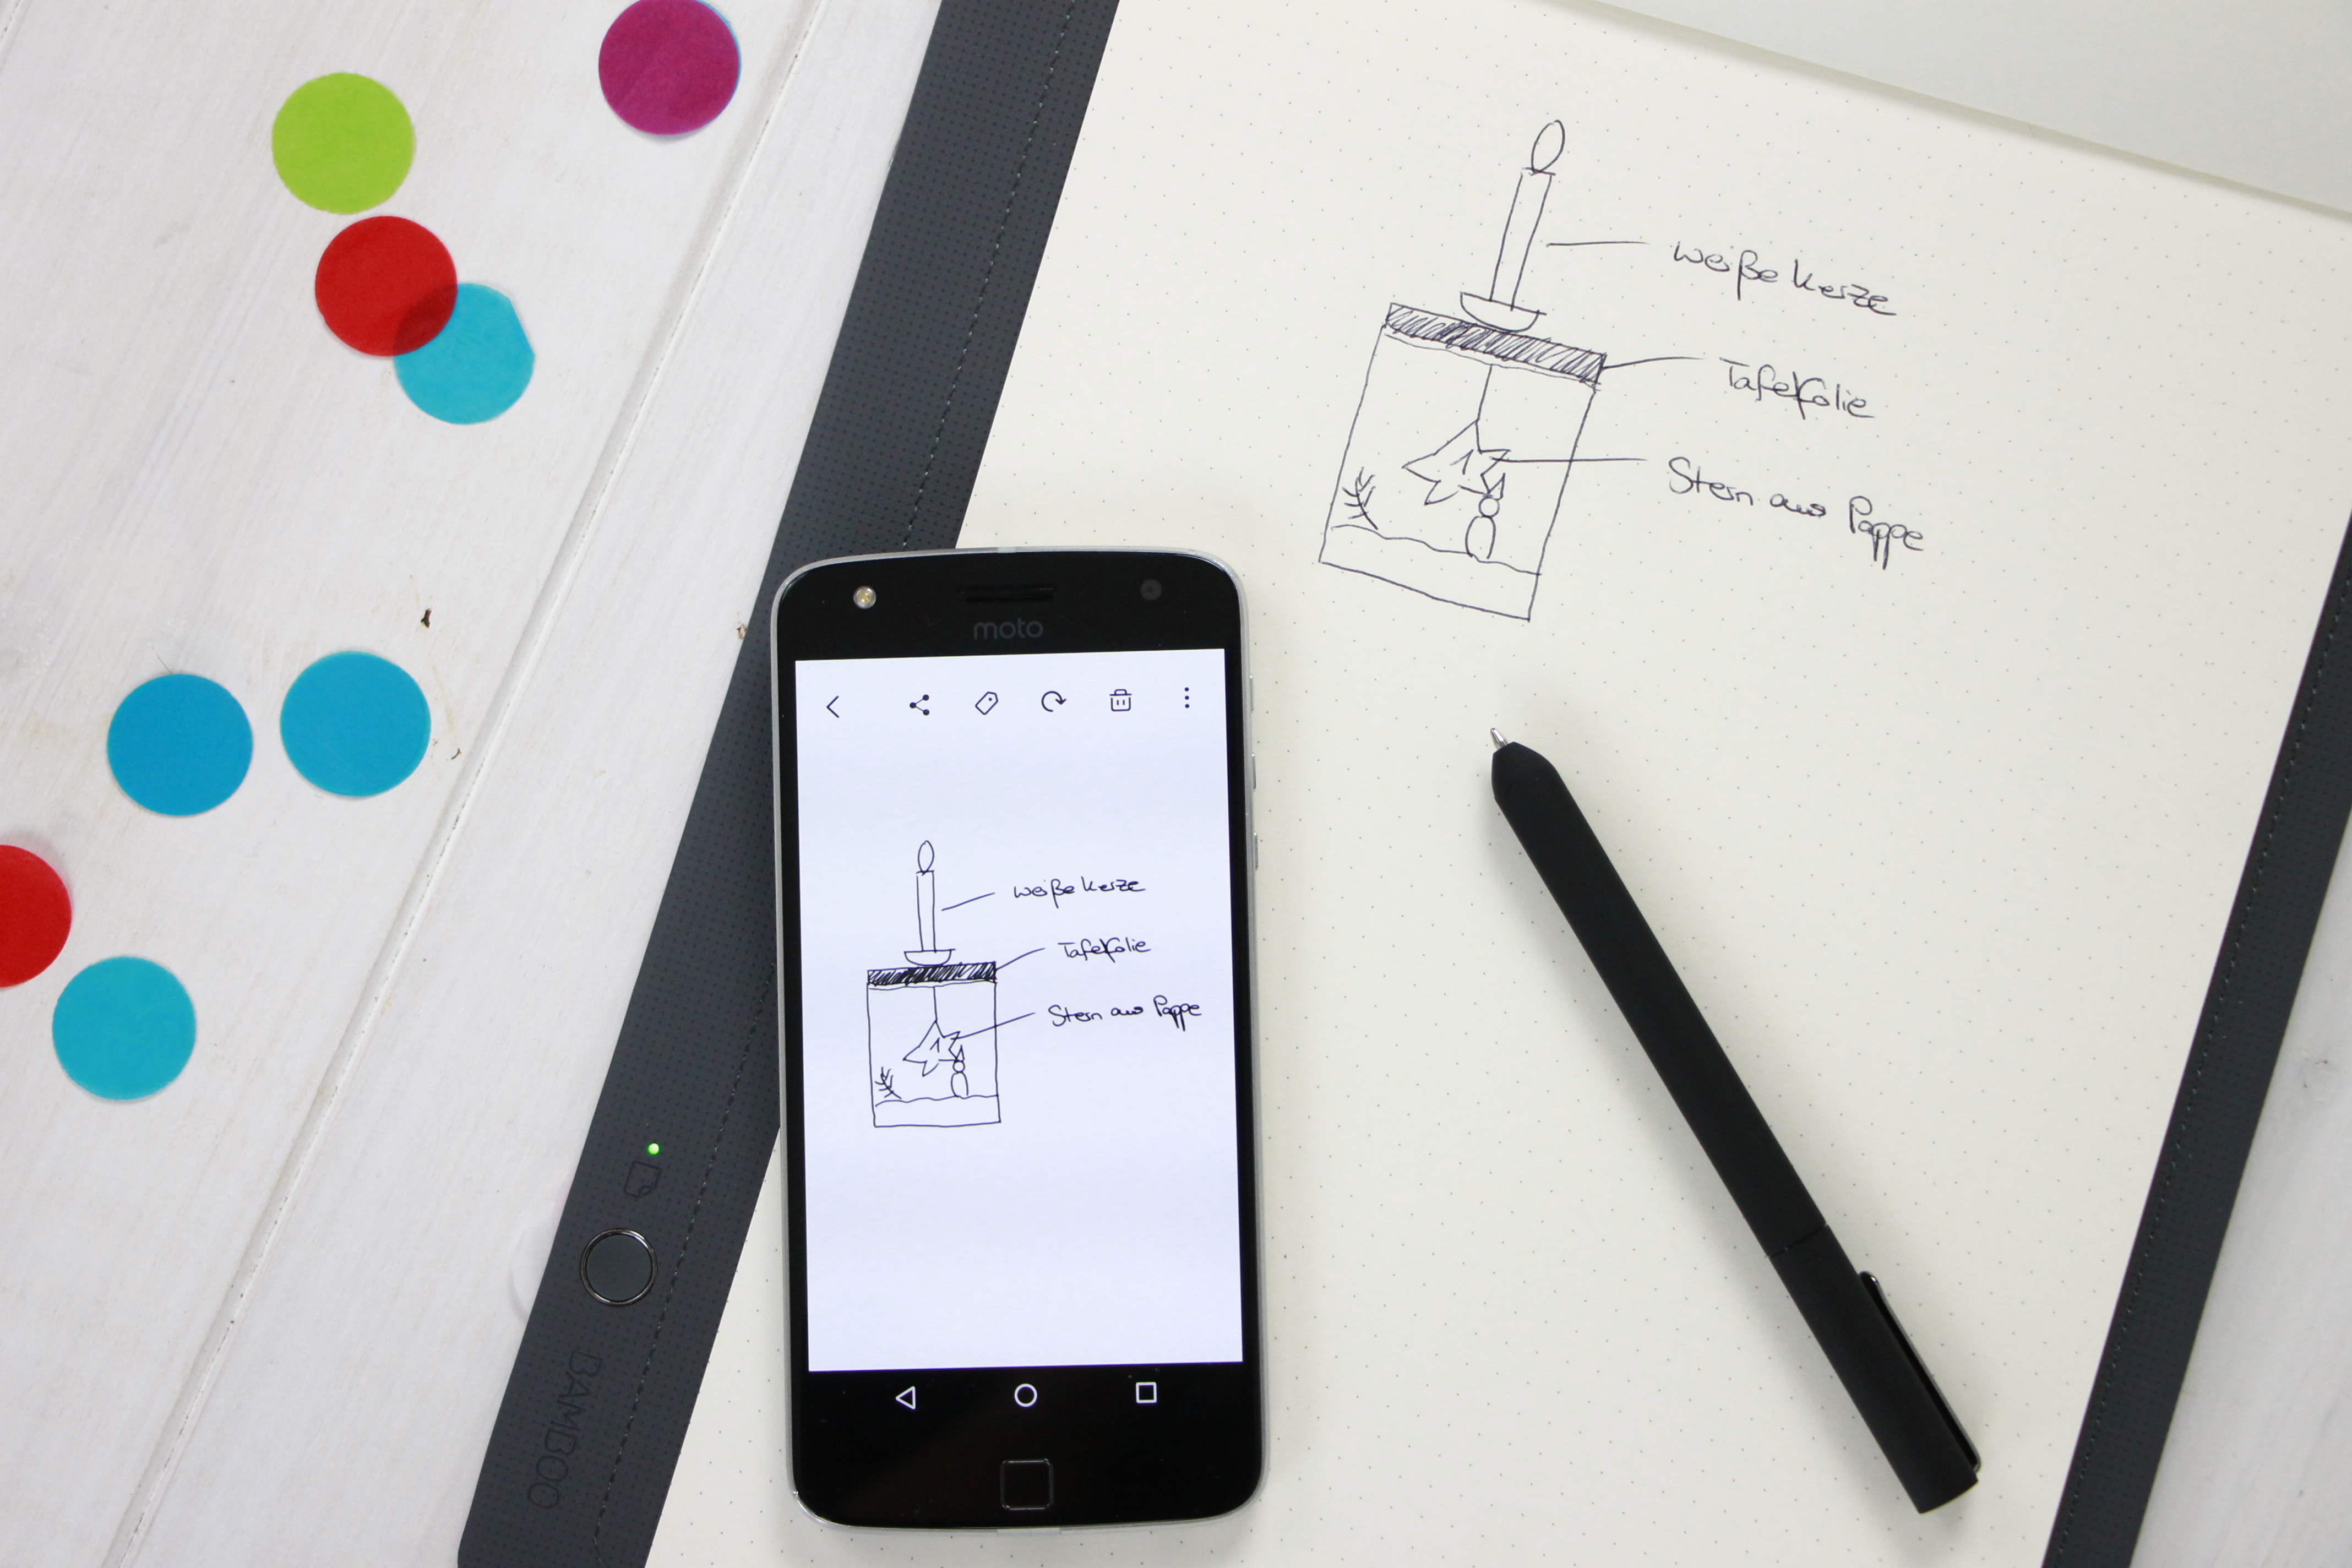 weiße Kerze
Tafelfolie
Stern aus Pappe
1
moto
weiße Kerze
Tafelfolie
Stern aus Pappe
1
BAMBOO